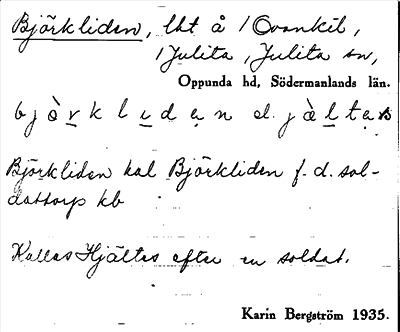 Björkliden, lht å 1 Ovankil,
1 Julita, Julita sn,
Oppunda hd, Södermanlands län.
bjö̀rklidẹn el. jàltạs
Björkliden kal Björkliden f. d. sol-
dattorp kb
Kallas Hjältas efter en soldat.
Karin Bergström 1935.